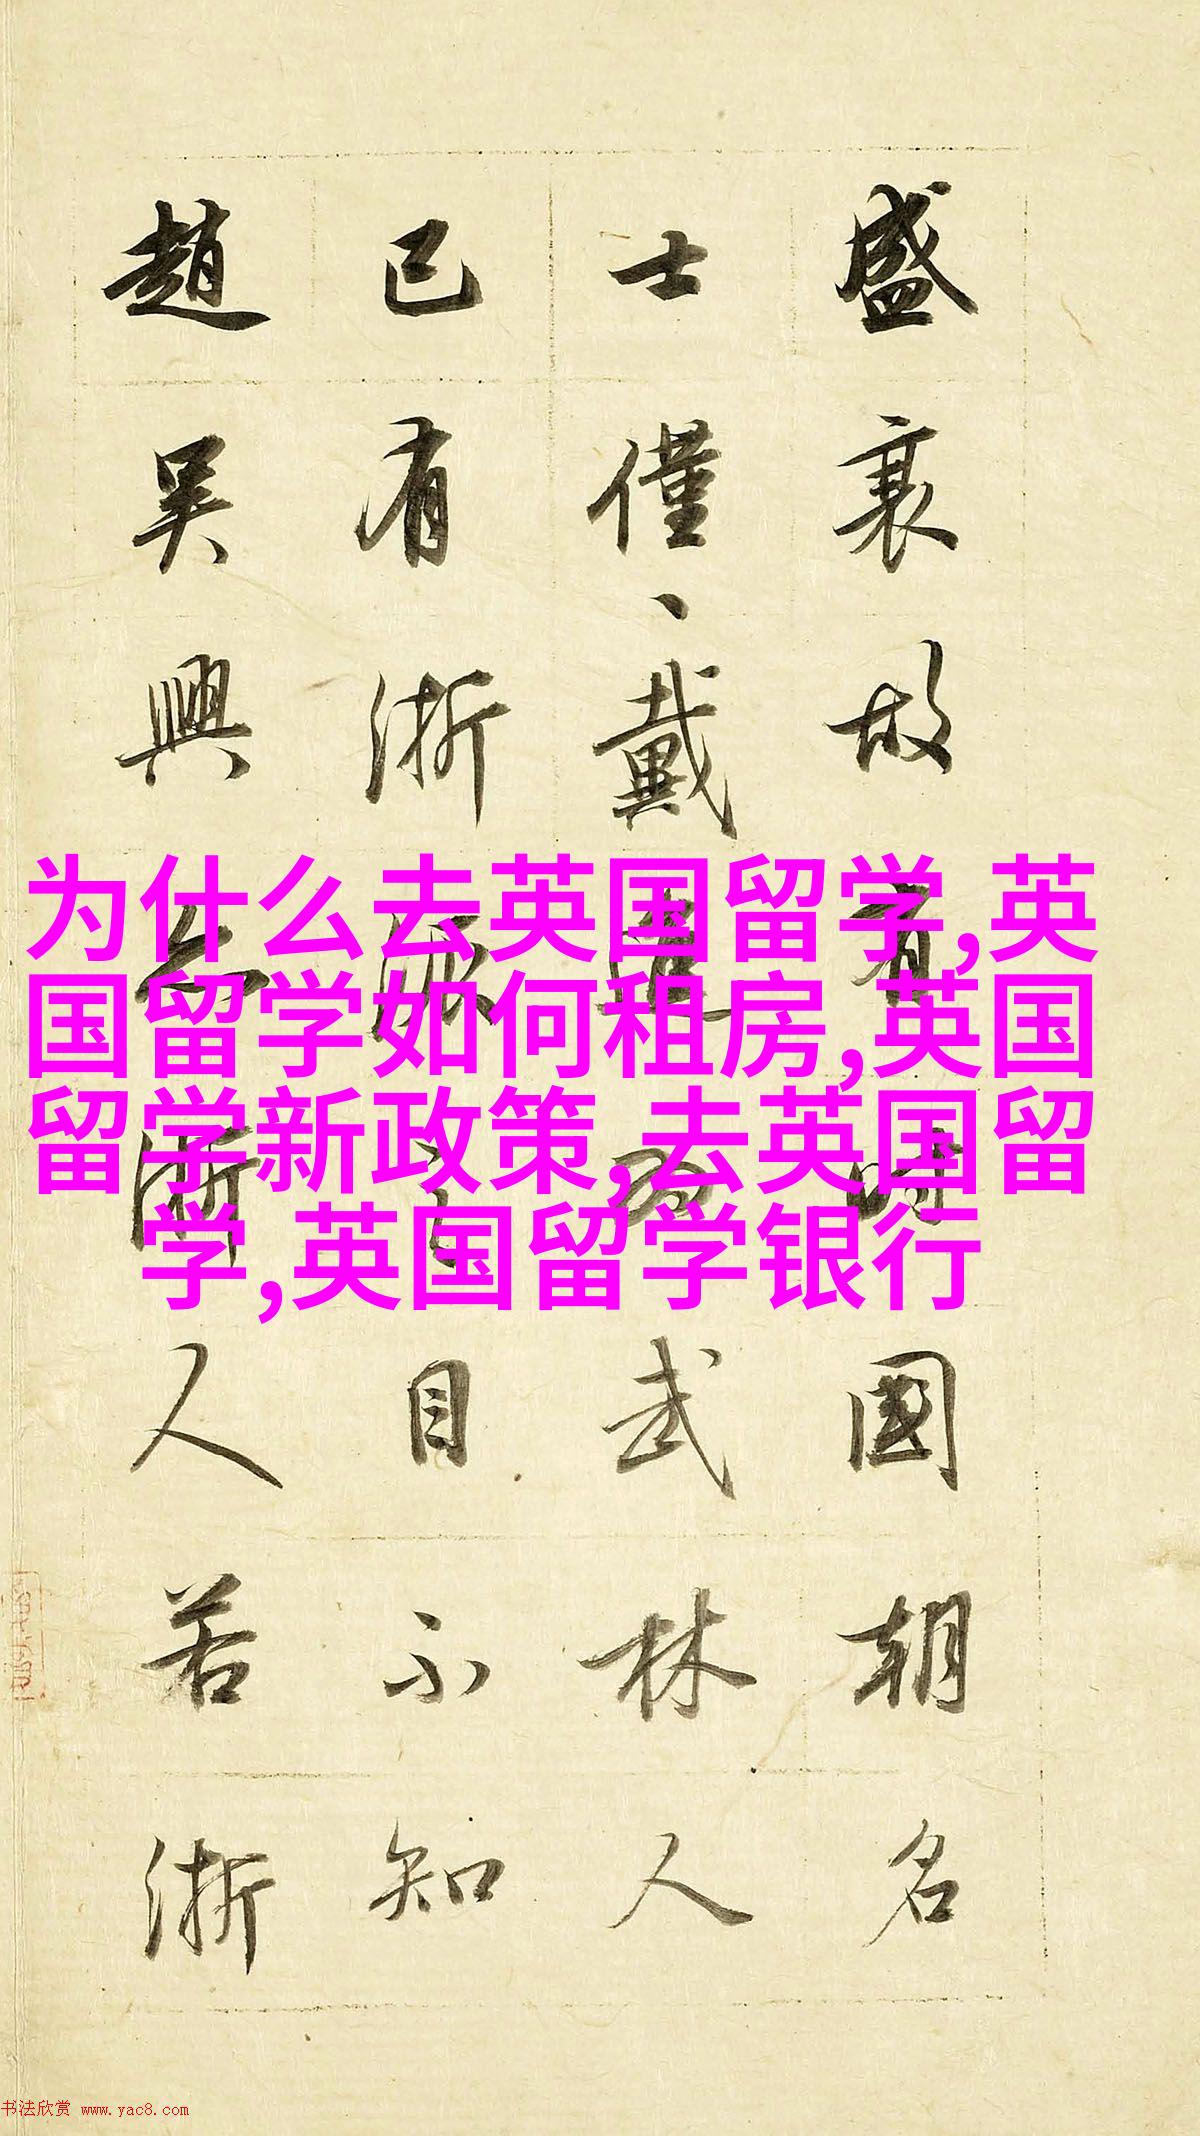 盛衰故有時國朝名
士僅、戴進為武林人
已有浙派之目不知
趙吳興亦浙人若浙
为什么去英国留学,英
国留学如何租房,英国
留学新政策,去英国留
学,英国留学银行
书法欣赏 www.yac8.com